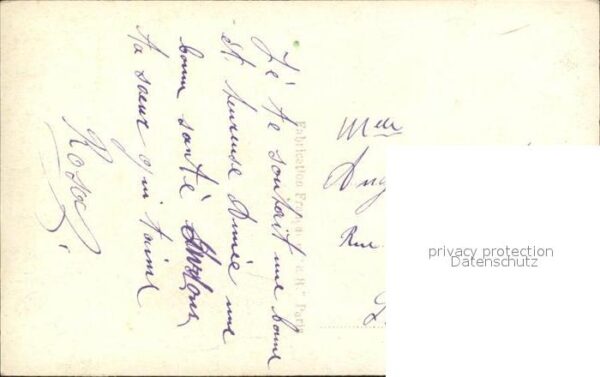 Je te souhait une bonne
et heureuse Année une
bonne santé
ta soeur qui t'aime
Rosa
Melle
Rue
Fabrication Française Paris
privacy protection
Datenschutz